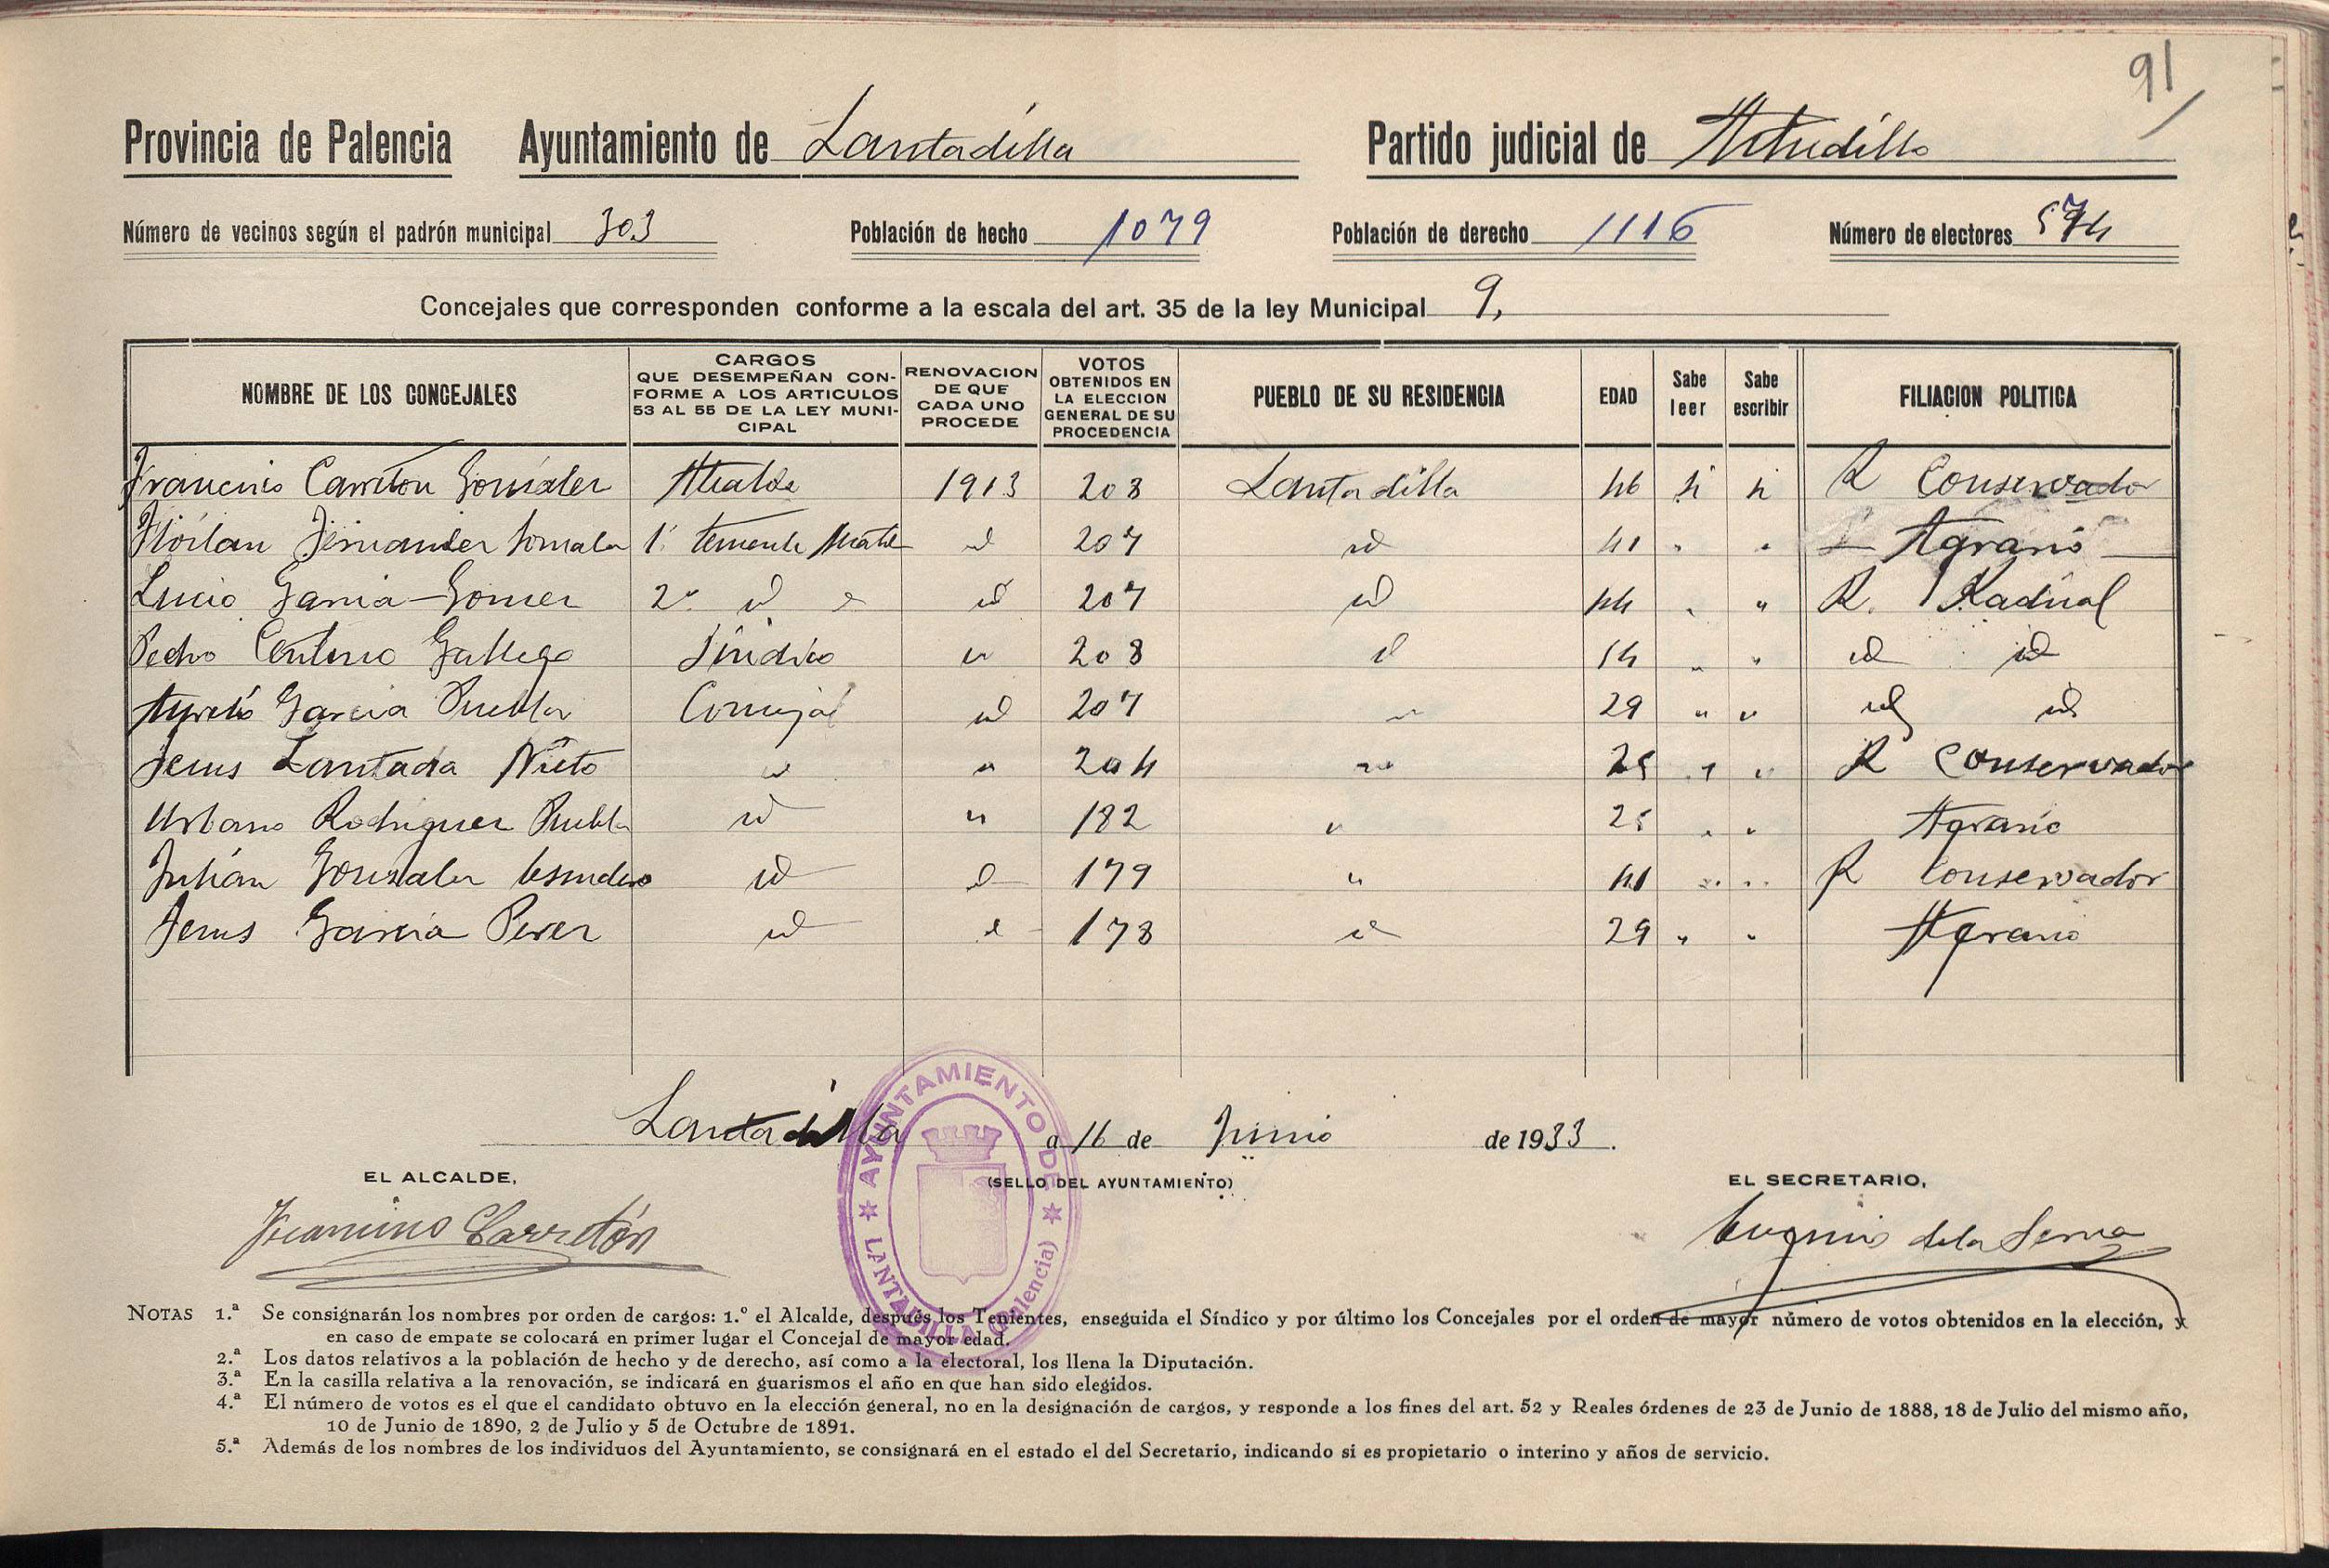 91
Provincia de Palencia Ayuntamiento de Lantadilla Partido judicial de Astudillo
Número de vecinos según el padrón municipal 303 Población de hecho 1079 Población de derecho 1116 Número de electores 574
Concejales que corresponden conforme a la escala del art. 35 de la ley Municipal 9,
NOMBRE DE LOS CONCEJALES CARGOS QUE DESEMPEÑAN CONFORME A LOS ARTICULOS 53 AL 55 DE LA LEY MUNICIPAL RENOVACION DE QUE CADA UNO PROCEDE VOTOS OBTENIDOS EN LA ELECCION GENERAL DE SU PROCEDENCIA PUEBLO DE SU RESIDENCIA EDAD Sabe leer Sabe escribir FILIACION POLITICA
Carretón González Alcalde 1913 208 Lantadilla 46 si si R Conservador
Froilan Fernandez 1º teniente Alcalde id 207 id 41 " " Agrario
Lucio Garcia Gomez 2º id id 207 id 44 " " R. Radical
Pedro Centeno Gallego Sindico " 208 id " " id id
Aurelio Garcia Puebla Concejal id 207 " 29 " " id id
Jesus Lantada Nieto id " 204 " 25 " " R Conservador
Urbano Rodriguez Puebla id " 182 " 25 " " Agrario
Julián Gonzalez Escudero id id 179 " 41 " " R Conservador
Jesus Garcia Perez id id 178 id 29 " " Agrario
Lantadilla a 16 de Junio de 1933.
EL ALCALDE, (SELLO DEL AYUNTAMIENTO) EL SECRETARIO,
Carretón Eugenio de la Serna
AYUNTAMIENTO DE LANTADILLA (Palencia)
NOTAS 1.ª Se consignarán los nombres por orden de cargos: 1.º el Alcalde, después los Tenientes, enseguida el Síndico y por último los Concejales por el orden de mayor número de votos obtenidos en la elección, y
en caso de empate se colocará en primer lugar el Concejal de mayor edad.
2.ª Los datos relativos a la población de hecho y de derecho, así como a la electoral, los llena la Diputación.
3.ª En la casilla relativa a la renovación, se indicará en guarismos el año en que han sido elegidos.
4.ª El número de votos es el que el candidato obtuvo en la elección general, no en la designación de cargos, y responde a los fines del art. 52 y Reales órdenes de 23 de Junio de 1888, 18 de Julio del mismo año,
10 de Junio de 1890, 2 de Julio y 5 de Octubre de 1891.
5.ª Además de los nombres de los individuos del Ayuntamiento, se consignará en el estado el del Secretario, indicando si es propietario o interino y años de servicio.